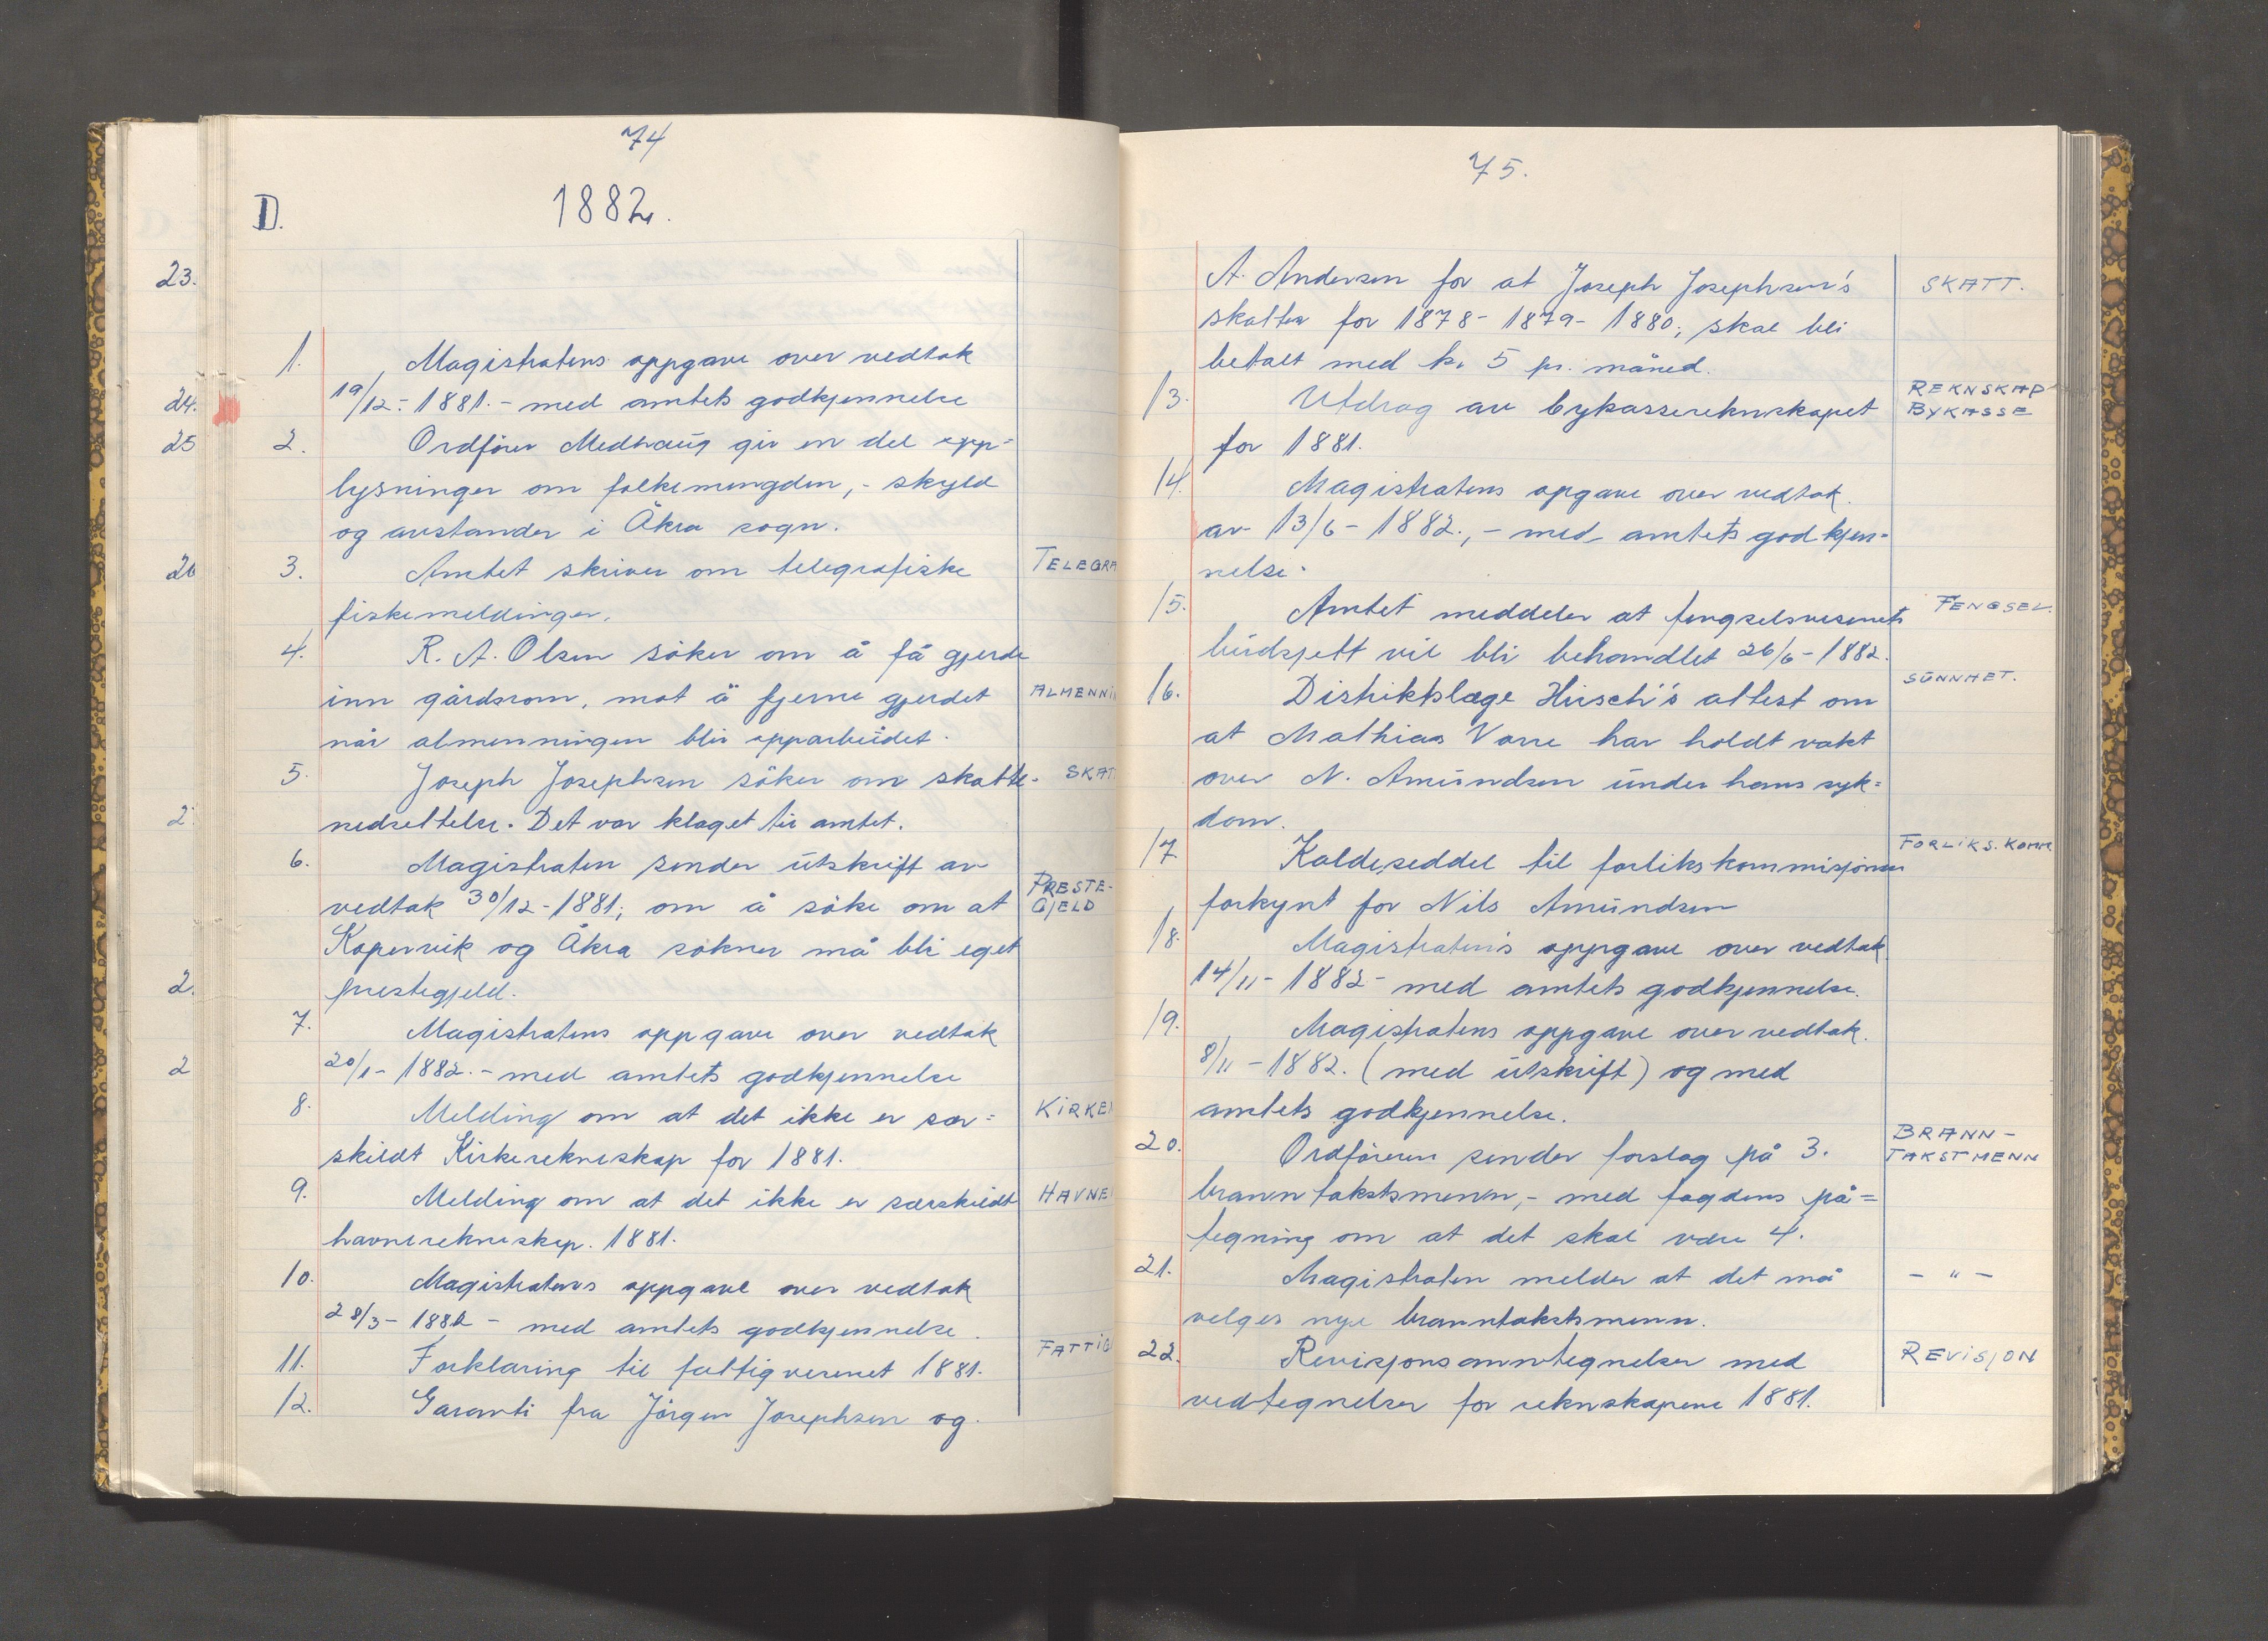 74
D. 1882.
23.
24.
25
1. Magistratens oppgave over vedtak
19/12 - 1881. - med amtets godkjennelse
2. Ordfører Medhaug gir en del opp=
lysninger om folkemengden, - skyld
og avstander i Åkra sogn.
3. Amtet skriver om telegrafiske TELEGRA
fiskemeldinger.
4. R. A. Olsen söker om å få gjerde
inn gårdsrom, mot å fjerne gjerdet ALMENNI
når almenningen blir opparbeidet.
5. Joseph Josephsen söker om skatte- SKAT
nedsettelse. Det var klaget til amtet.
6. Magistraten sender utskrift av
vedtak 30/12 - 1881; om å söke om at PRESTE-
GJELD
Kopervik og Åkra sokner må bli eget
prestegjeld.
7. Magistratens oppgave over vedtak
20/1 - 1882. - med amtets godkjennelse
8. Melding om at det ikke er sær= KIRKE
skildt Kirkerekneskap for 1881.
9. Melding om at det ikke er særskildt HAVNE
havnerekneskap. 1881.
10. Magistratens oppgave over vedtak
28/3 - 1882 - med amtets godkjennelse.
11. Forklaring til fattigvesenet 1881. FATTIG
12. Garanti fra Jörgen Josephsen og
75.
A. Andersen for at Joseph Josephsen's SKATT.
skatter for 1878 - 1879 - 1880; skal bli
betalt med kr 5 pr. måned.
13. Utdrag av bykasserekneskapet REKNSKAP
BYKASSE
for 1881.
14. Magistratens opgave over vedtak.
av 13/6 - 1882., - med amtets godkjen-
nelse.
15. Amtet meddeler at fengselsvesenets FENGSEL.
budsjett vil bli behandlet 26/6 - 1882.
16. Distriktslæge Hirsch's attest om SUNNHET.
at Mathias Vorre har holdt vakt
over N. Amundsen under hans syk=
dom.
17. Kaldeseddel til forlikskommisjonen FORLIKS. KOMM
forkynt for Nils Amundsen
18. Magistraten's oppgave over vedtak
14/11 - 1882 - med amtets godkjennelse.
19. Magistratens oppgave over vedtak.
8/11 - 1882. (med utskrift) og med
amtets godkjennelse.
20. Ordföreren sender forslag på 3. BRANN-
TAKSTMENN
branntakstsmenn, - med fogdens på=
tegning om at det skal være 4.
21. Magistraten melder at det må - " -
velges nye branntakstsmenn.
22. Revisjonsanntegnelser med REVISJON
vedtegnelser for reknskapene 1881.